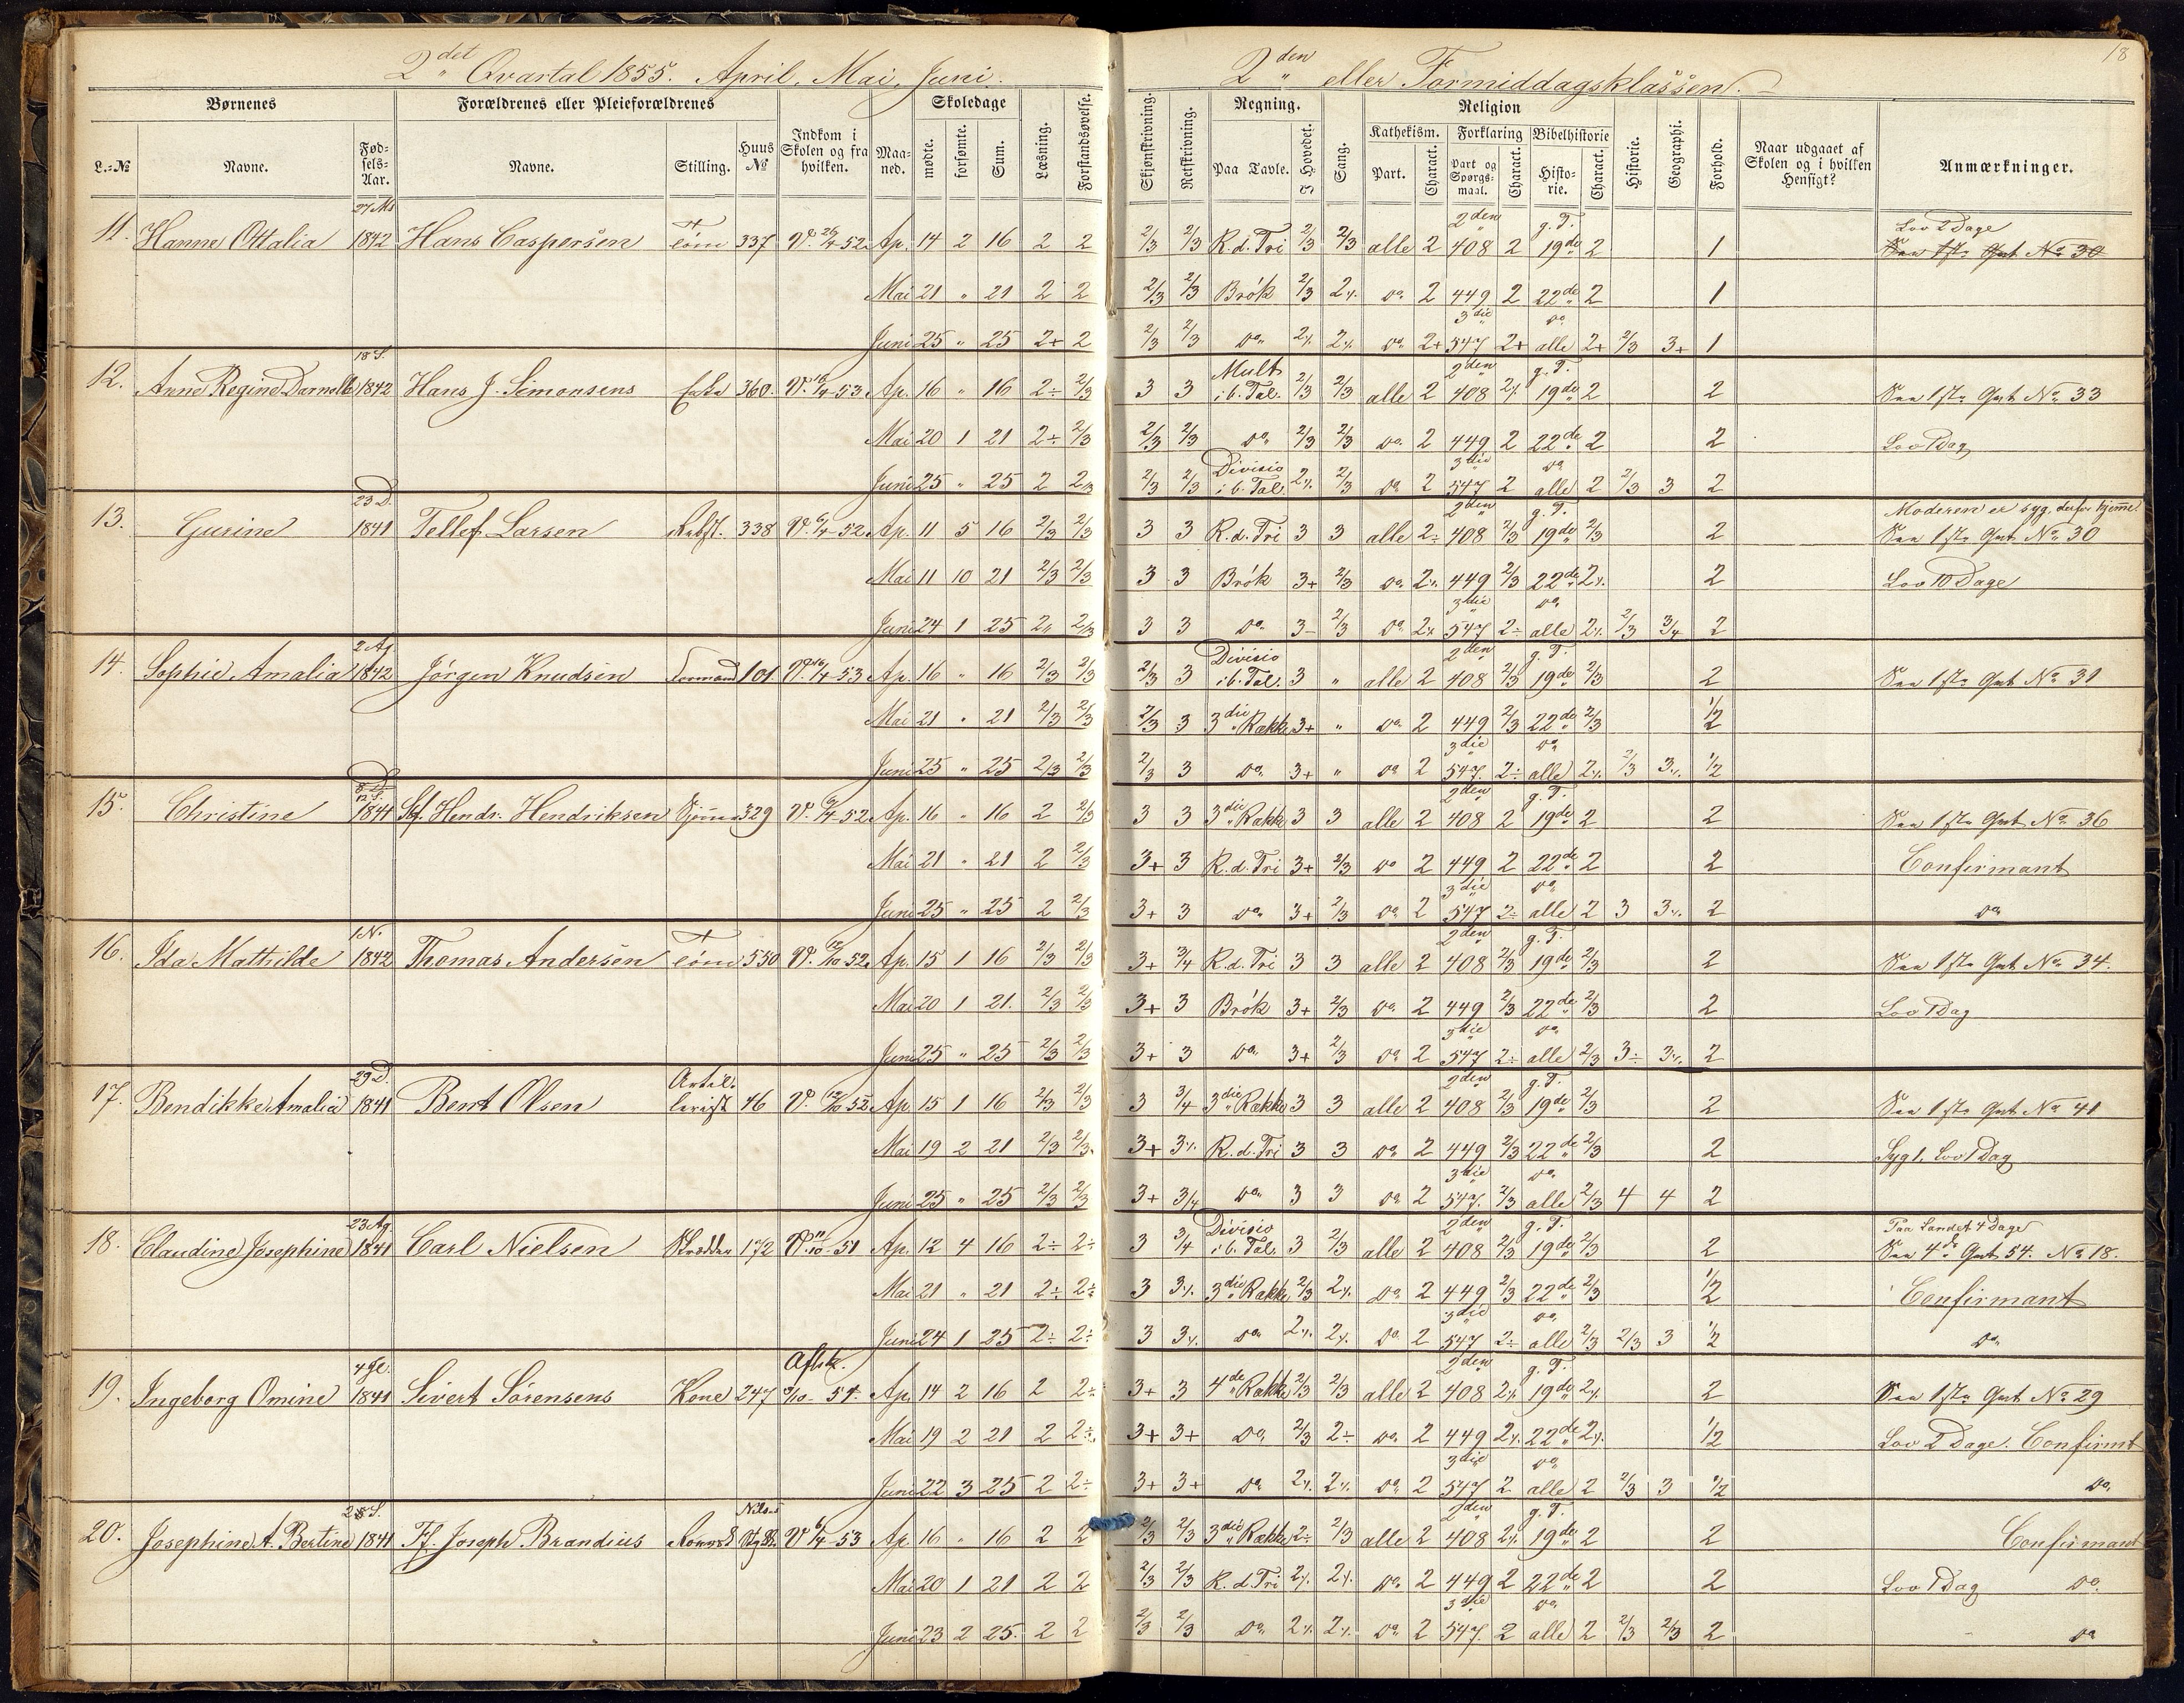 2det Qvartal 1855. April, Mai, Juni.
2den eller Formiddagsklassen.
18
Børnenes
Forældrenes eller Pleieforældrenes
Indkom i Skolen og fra hvilken.
Maaned.
Skoledage
Læsning.
Forstandsøvelse.
Skjønskrivning.
Retskrivning.
Regning.
Sang.
Religion
Historie.
Geographi.
Forhold.
Naar udgaaet af Skolen og i hvilken Hensigt?
Anmærkninger.
L.-No
Navne.
Fødsels-Aar.
Navne.
Stilling.
Huus No
mødte.
forsømte.
Sum.
Paa Tavle.
I Hovedet.
Kathekism.
Forklaring
Bibelhistorie
Part.
Charact.
Part og Spørgsmaal.
Charact.
Historie.
Charact.
11. Hanne Ottalia 1842 Hans Caspersen 337 Ap. 14 2 16 2 2 2/3 2/3 R.d.Tri 2/3 2/3 alle 2 2den 408 2 g.T. 19de 2 1 Lov 2 Dage
Mai 21 " 21 2 2 2/3 2/3 Brøk 2/3 do 2 449 2 22de 2 1
Juni 25 " 25 2+ 2 2/3 2/3 do do 2+ 3die 547 2+ do alle 2+ 2/3 3+ 1
12. Anne Regine 18 S. 1842 Hans J. Simonsens Enke 360. Ap. 16 " 16 2÷ 2/3 3 3 Mult i b. Tal. 2/3 2/3 alle 2 2den 408 g.T. 19de 2 2 1ste Qrt No 33
Mai 20 1 21 2÷ 2/3 2/3 2/3 do 2/3 2/3 do 2 449 2 22de 2 2 Lov 1 Dag
Juni 25 " 25 2 2/3 2/3 2/3 Divisio i b. Tal. 2/3 do 2 3die 547 2 do alle 2 2/3 3 2
13. Gurine 23 D. 1841 Tellef Larsen 338 Ap. 11 5 16 2/3 2/3 3 3 R.d.Tri 3 3 alle 2÷ 2den 408 2/3 g.T. 19de 2/3 2 Moderen er syg, derfor hjemme! 1ste Qrt No 30
Mai 11 10 21 2/3 2/3 3 3 Brøk 3+ 2/3 do 449 2/3 22de 2 Lov 10 Dage
Juni 24 1 25 2/3 3 3 do 3- 2/3 do 3die 547 2÷ do alle 2/3 3/4 2
14. Sophie Amalia 2 Ag. 1842 Jørgen Knudsen Formand 101. Ap. 16 " 16 2/3 2/3 2/3 3 Divisio i b. Tal. 3 " alle 2 2den 408 2/3 g.T. 19de 2/3 2 1ste Qrt No 31
Mai 21 " 21 2/3 2/3 2/3 3 3die Række 3+ " do 2 449 2/3 22de 2/3 1/2
Juni 25 " 25 2/3 2/3 2/3 3 do 3+ " do 2 3die 547. 2÷ do alle 2/3 1/2
15. Christine 1841 Hendr. Hendriksen 329 Ap. 16 " 16 2 2/3 3 3 3die Række 3 3 alle 2 2den 408 2 g.T. 19de 2 2 1ste Qrt No 36
Mai 21 " 21 2 2/3 3+ 3 R.d.Tri 3+ 2/3 do 2 449 2 22de 2 2 Confirmant
Juni 25 " 25 2 2/3 3+ 3 do 3+ 2/3 do 2 3die 547 2÷ do alle 2 3 2 do
16. Ida Mathilde 1 N. 1842 Thomas Andersen 550 Ap. 15 1 16 2/3 2/3 3+ 3/4 R.d.Tri 3 3 alle 2 2den 408 2/3 g.T. 19de 2/3 2 1ste Qrt No 34.
Mai 20 1 21. 2/3 2/3 3+ 3 Brøk 3+ 2/3 do 2 449 2/3 22de 2/3 2 Lov 1 Dag
Juni 25 " 25 2/3 2/3 3+ 3 do 3+ 2/3 do 2 3die 547 2÷ do alle 2/3 3÷ 2
17. Bendikke Amalia 29 D. 1841 Bent Olsen Artillerist 46 Ap. 15 1 16 2/3 2/3 3 3/4 3die Række 3 3 alle 2 2den 408 2/3 g.T. 19de 2/3 2 1ste Qrt No 41
Mai 19 2 21 2/3 2/3 3+ R.d.Tri 3 3 do 2 449 2/3 22de 2/3 2 Syg 1. Lov 1 Dag
Juni 25 " 25 2/3 2/3 3+ 3/4 do 3 3 do 2 3die 547. 2/3 do alle 2/3 4 4 2
18. Claudine Josephine 23 Ag. 1841 Carl Nielsen Skrædder 172 Ap. 12 4 16 2÷ 2÷ 3 3/4 Divisio i b. Tal. 3 2/3 alle 2 2den 408 2/3 g.T. 19de 2/3 2 Paa Landet 4 Dage 4de Qrt 54. No 18.
Mai 21 " 21 2÷ 2÷ 3 3die Række 2/3 do 2 449 2/3 22de 2/3 1/2 Confirmant
Juni 24 1 25 2÷ 2÷ 3 do do 2 3die 547 2÷ do alle 2/3 2/3 3 1/2 do
19. Ingeborg Omine 1841 Sivert Sørensens Kone 247 Ap. 14 2 16 2 2÷ 3+ 3 4de Række 2/3 2/3 alle 2 2den 408 g.T. 19de 2 1ste Qrt No 29
Mai 19 2 21 2 2÷ 3+ 3+ do 2/3 2÷ do 2 449 22de 1/2 Lov 2 Dage. Confirmt
Juni 22 3 25 2 2÷ 3+ 3+ do do 2 3die 547 2 do alle 2 2/3 3 1/2 do
20. Josephine A. Bertine 1841 Joseph Brandius Ap. 16 " 16 2 2 2/3 2/3 3die Række 2÷ 2/3 alle 2 2den 408 g.T. 19de 2 2 Confirmant
Mai 20 1 21 2 2 2/3 2/3 R.d.Tri do 2 449 2 22de 2 2 Lov 1 Dag do
Juni 23 2 25. 2 2 2/3 2/3 do do 2 3die 547. 2 do alle 2 2/3 2/3 2 do